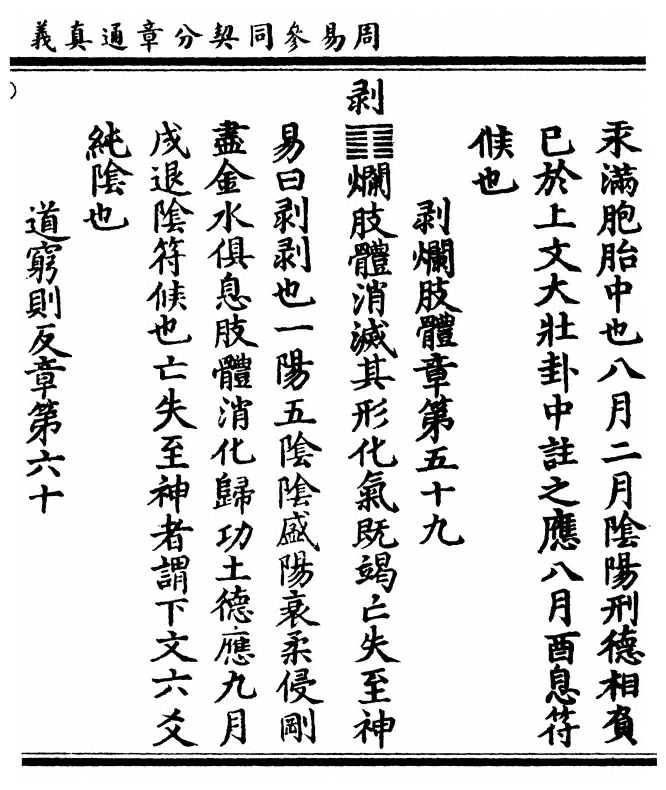 周易參同契分章通真義
汞滿胞胎中也八月二月陰陽刑德相負
巳於上文大壯卦中註之應八月酉息符
候也
剥爛肢體章第五十九
剥䷖爛肢體消滅其形化氣既竭亡失至神
易曰剥剥也一陽五陰陰盛陽衰柔侵剛
盡金水俱息肢體消化歸功土德應九月
戌退陰符候也亡失至神者謂下文六爻
純陰也
道窮則反章第六十